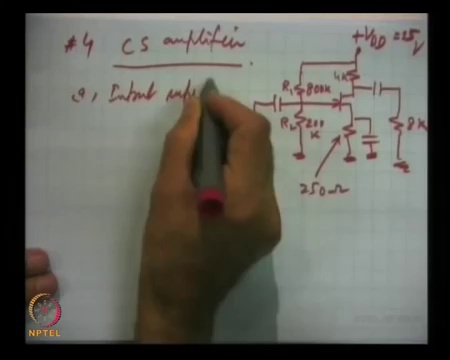 #4 CS amplifier
a, Input
+VDD = 15V
4K
R1 800K
R2 200K
8K
250Ω
NPTEL